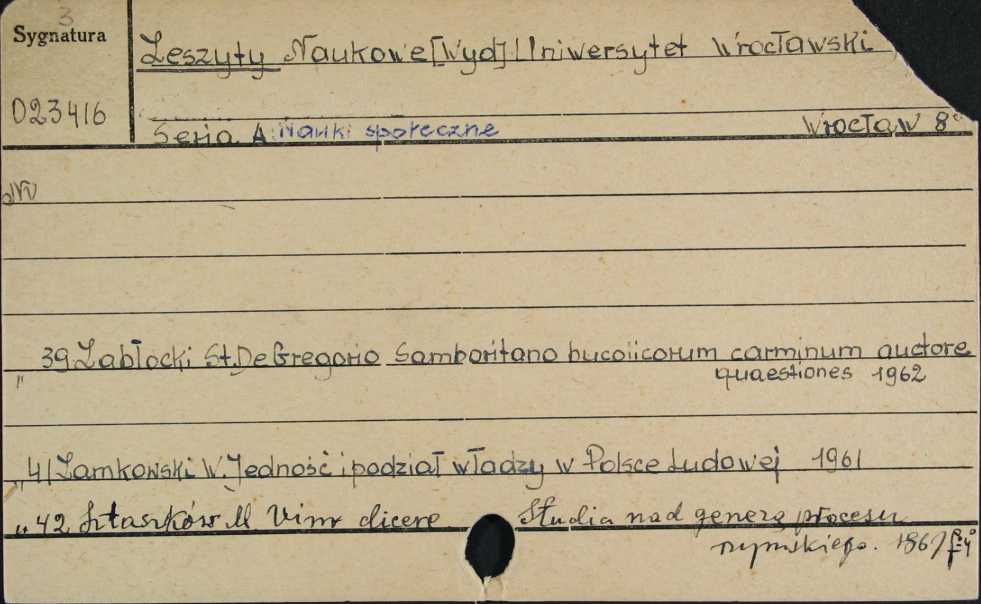 3
Sygnatura
Zeszyty Naukowe [Wyd] Uniwersytet Wrocławski
023416
Seria A. Nauki społeczne Wrocław 8°
nr
39 Zabłocki St. De Gregorio Samboritano bucolicorum carminum auctore
" quaestiones 1962
" 41 Zamkowski W. Jedność i podział władzy w Polsce Ludowej 1961
" 42 Sztaszków M. Vim dicere Studia nad genezą procesu
rzymskiego.